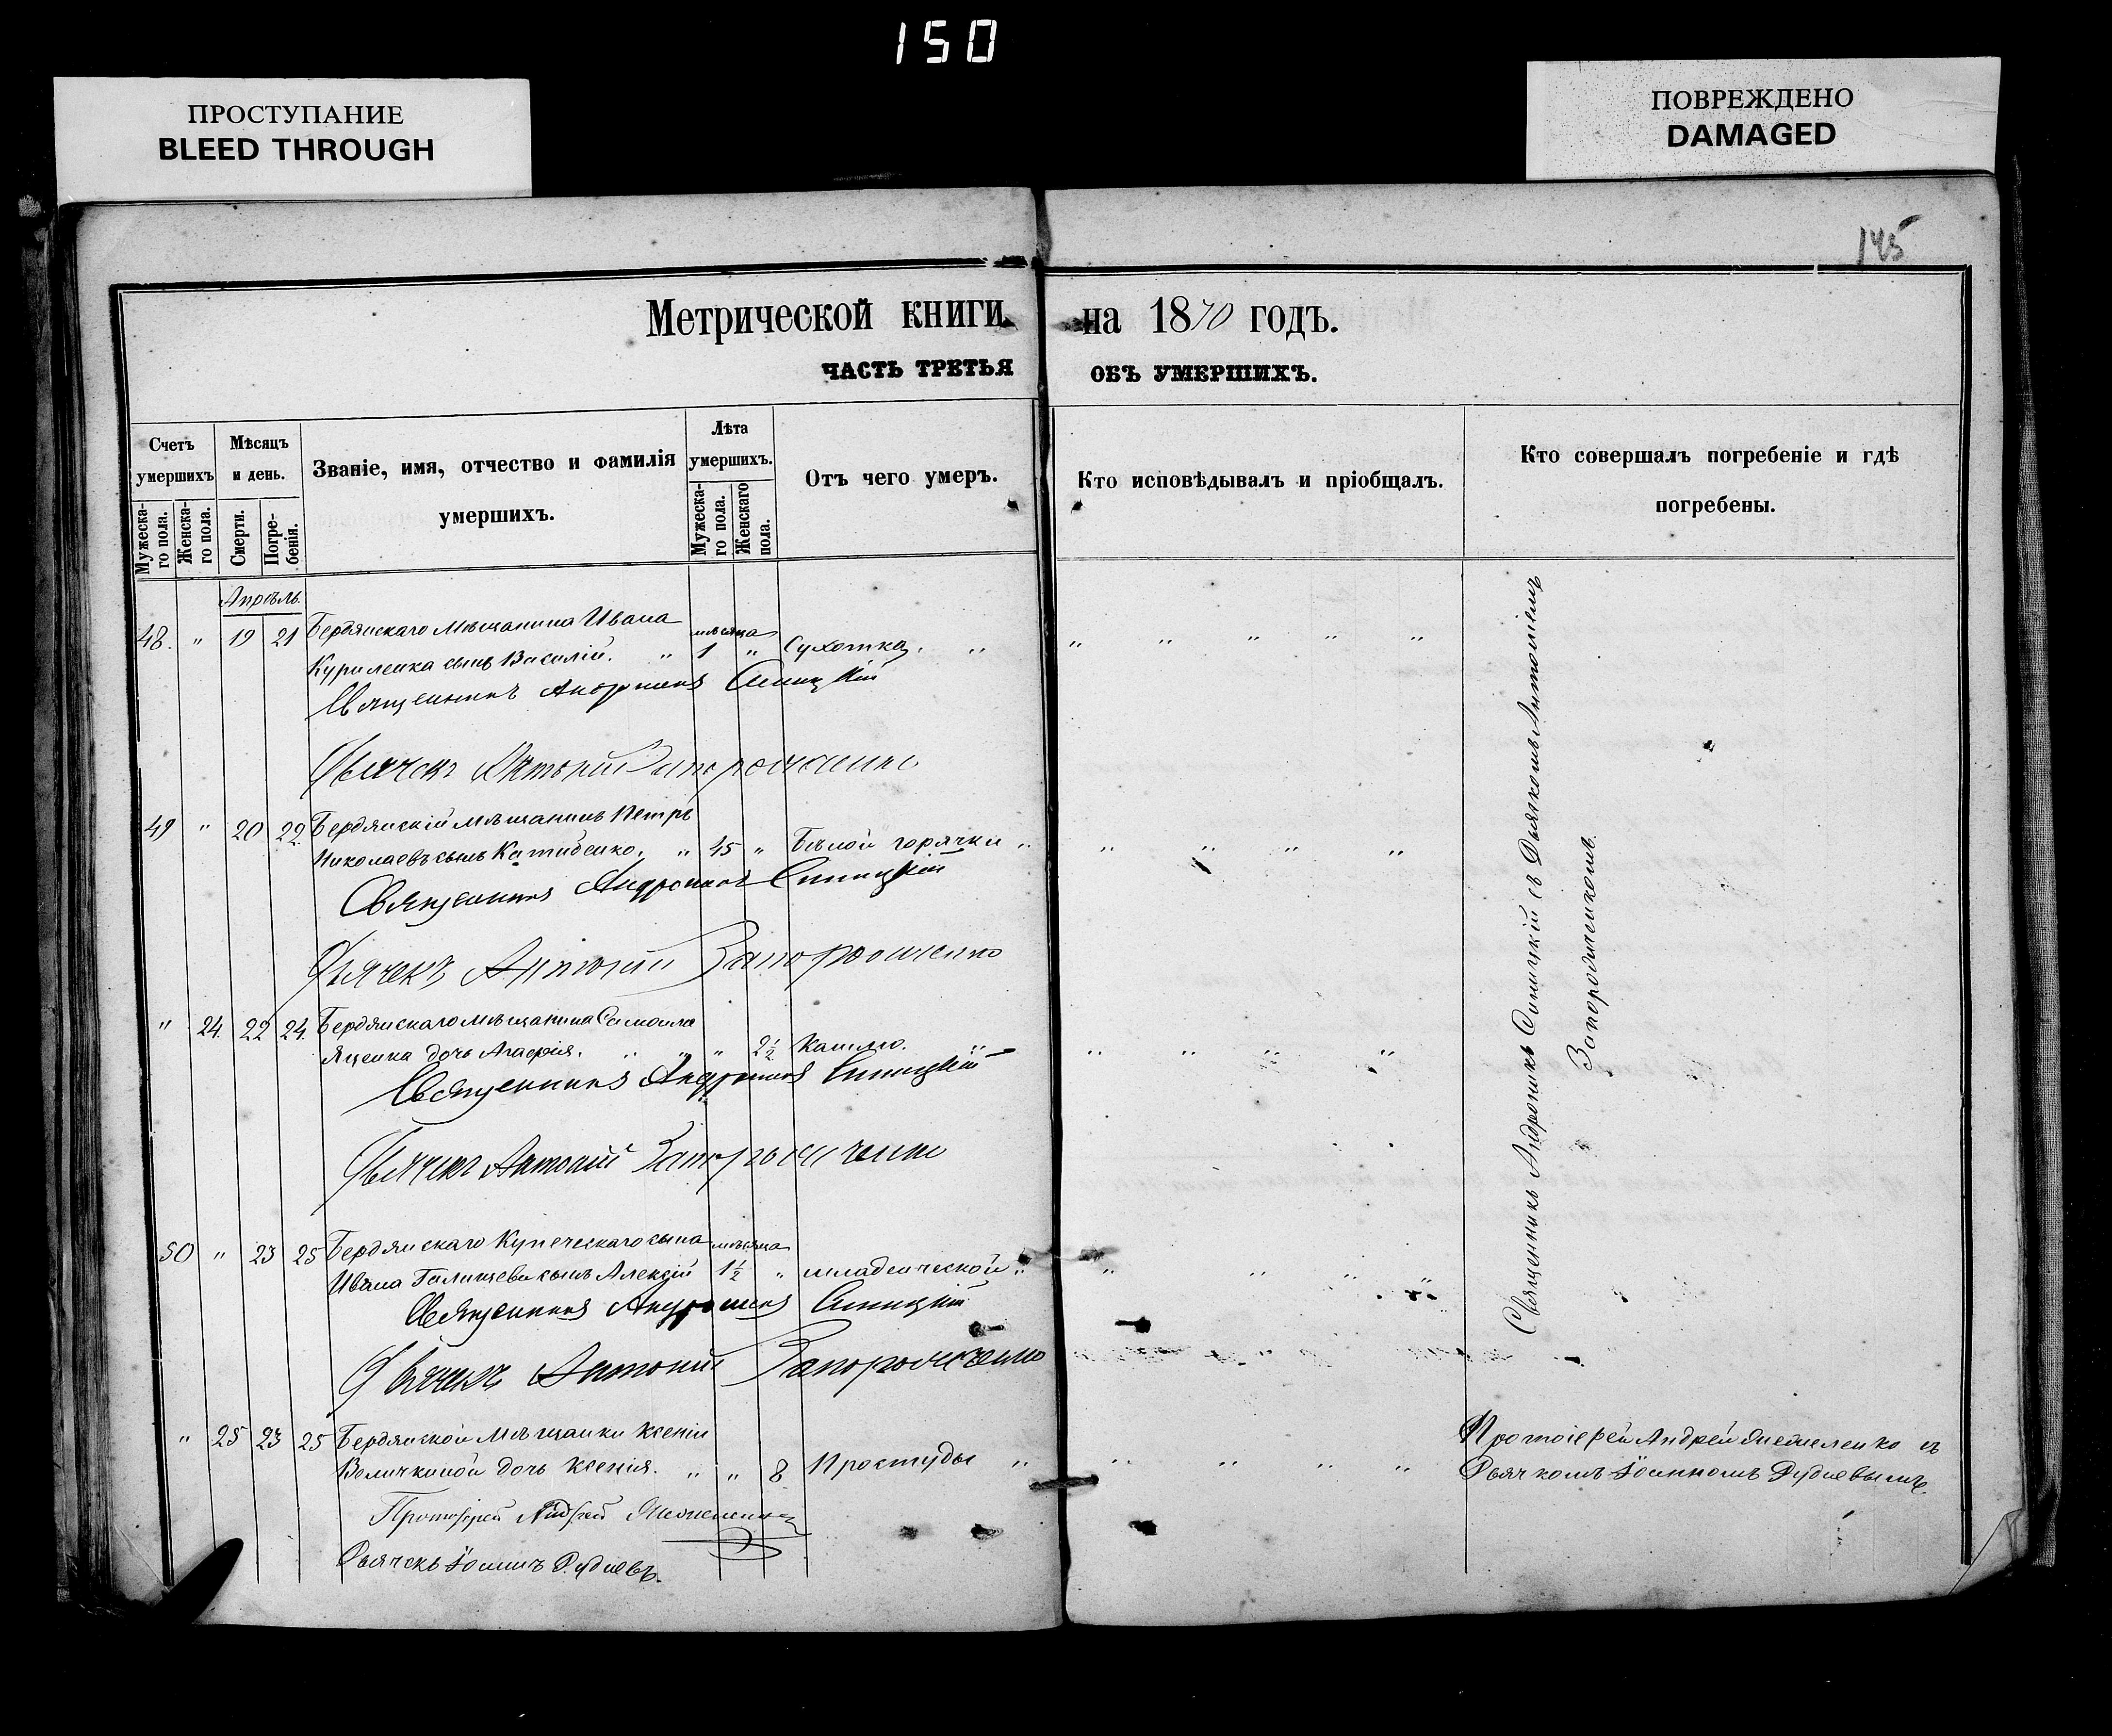 150
ПРОСТУПАНИЕ
BLEED THROUGH
ПОВРЕЖДЕНО
DAMAGED
145
Метрической книги на 1870 годъ.
ЧАСТЬ ТРЕТЬЯ ОБЪ УМЕРШИХЪ.
Счетъ умершихъ
Мужеска-го пола.
Женска-го пола.
Мѣсяцъ и день.
Смерти.
Погре-бенія.
Званіе, имя, отчество и фамилія
умершихъ.
Лѣта умершихъ.
Мужеска-го пола.
Женскаго пола.
Отъ чего умеръ.
Кто исповѣдывалъ и пріобщалъ.
Кто совершалъ погребеніе и гдѣ
погребены.
Апрѣль.
48. " 19 21 Бердянскаго мѣщанина Ивана мѣсяца
Куриленка сынъ Василій. " 1 " Сухотка. " " " " " "
Священникъ Андроникъ Синицкій
Дьячекъ Антоній Запорожченко
49 " 20 22 Бердянскій мѣщанинъ Петръ
Николаевъ сынъ " 45 " Бѣлой горячки " " " " "
Священникъ Андроникъ Синицкій
Дьячекъ Антоній Запорожченко
" 24. 22 24. Бердянскаго мѣщанина Самоила
Яценка дочь Агафія. " " " 2½ Кашлю. " " " " "
Священникъ Андроникъ Синицкій
Дьячекъ Антоній Запорожченко
50 " 23 25 Бердянскаго Купеческаго сына мѣсяца
Ивана сынъ Алексій 1½ " младенческой " " " " "
Священникъ Андроникъ Синицкій
Дьячекъ Антоній Запорожченко
Священникъ Андроникъ Синицкій съ Дьякомъ Антоніемъ
Запорожченкомъ.
" 25 23 25 Бердянской мѣщанки Ксеніи
Величкиной дочь Ксенія. " " 8 Простуды " " " " "
Протоіерей Андрей
Дьячекъ Іоаннъ Рудневъ.
Протоіерей Андрей съ
Дьячкомъ Іоанномъ Рудневымъ.